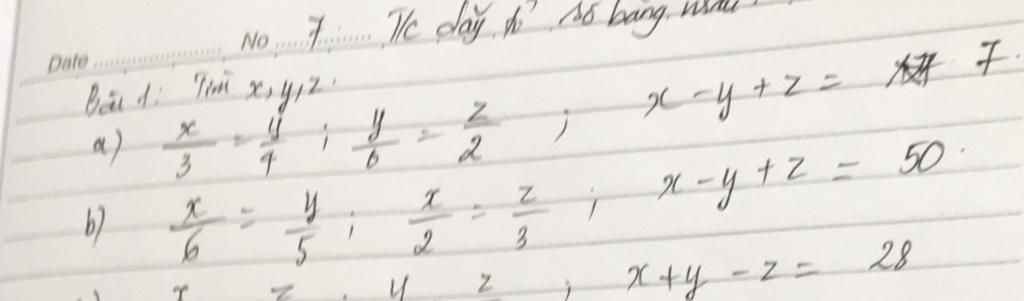 Date No 7 T/c dãy tỉ số bằng nhau
Bài 1: Tìm x, y, z.
a) x/3 = y/4 ; y/6 = z/2 ; x - y + z = 7.
b) x/6 = y/5 ; x/2 = z/3 ; x - y + z = 50.
x z ; y z ; x + y - z = 28